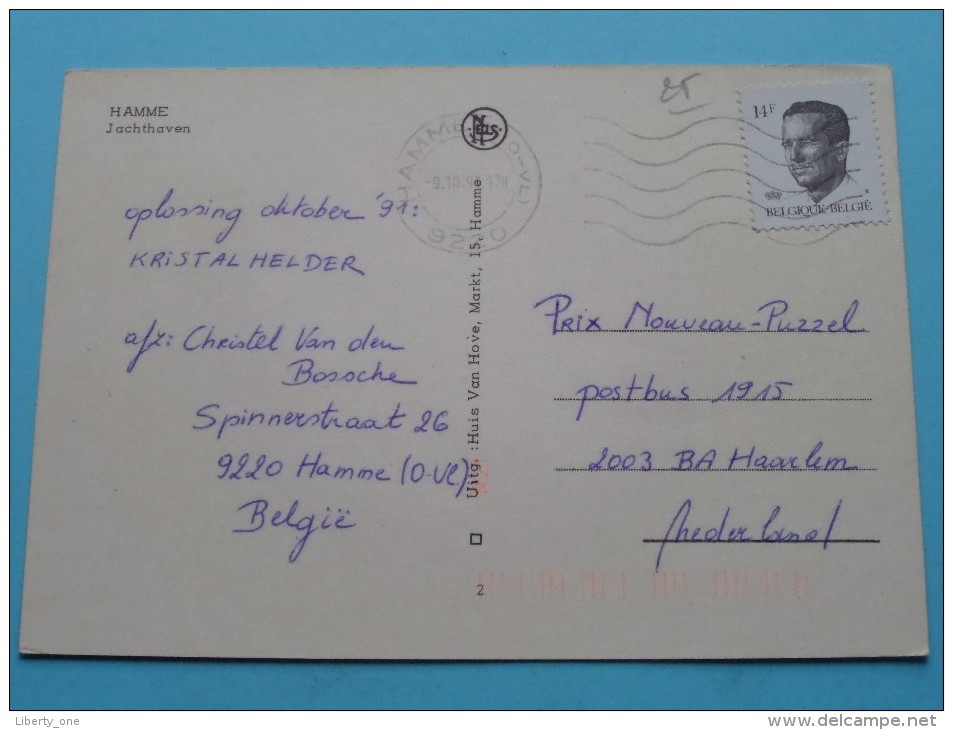 HAMME
Jachthaven
oplossing oktober '91:
KRISTALHELDER
afz: Christel Van den
Bossche
Spinnerstraat 26
9220 Hamme (O-Vl)
België
NELS
HAMME (O-VL)
9220
Uitg. :Huis Van Hove, Markt, 15, Hamme
2
25
14F
BELGIQUE-BELGIË
Prix Nouveau-Puzzel
postbus 1915
2003 BA Haarlem
Nederland
Liberty_one
www.delcampe.net